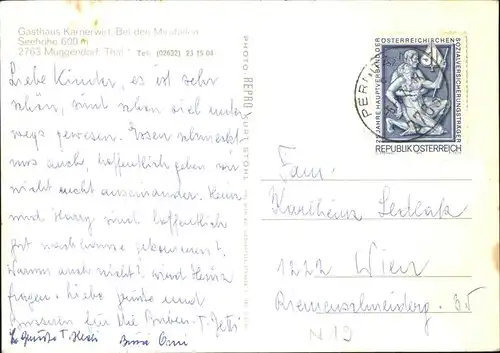 Gasthaus Karnerwirt, Bei den Mirafällen
Seehöhe 600 m
2763 Muggendorf Thal Tel: (02632) 23 15 04
Liebe Kinder, es ist sehr
schön, sind schon viel unter
wegs gewesen. Essen schmeckt
uns auch, hoffentlich gehen wir
nicht auseinander. Heinz
und Harry sind hoffentlich
gut nach Hause gekommen?
Warum auch nicht! werd Heinz
fragen. Liebe Grüße und
Bussern für die Buben. T. Hetti
Lg Grüße T. Hetti Bussi Omi
PHOTO REPRO KURT STOHL
PERNITZ
2763
25 JAHRE HAUPTVERBAND DER ÖSTERREICHISCHEN SOZIALVERSICHERUNGSTRÄGER
S 4
REPUBLIK ÖSTERREICH
Fam.
Karlheinz
1222 Wien
N 19